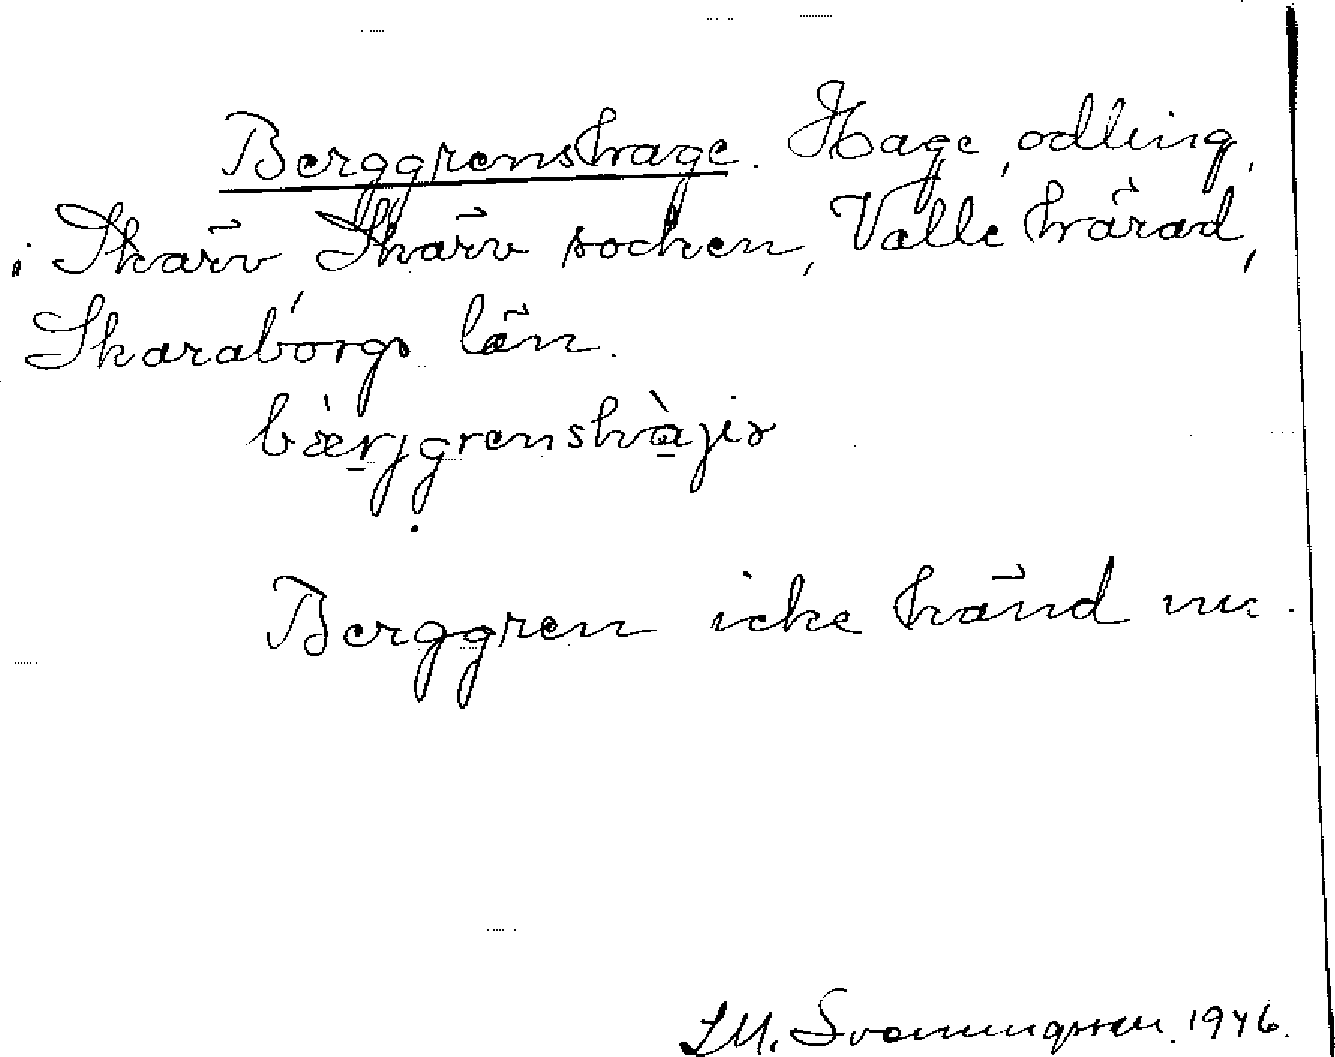 Berggrenshage. Hage, odling,
i Skärv Skärv socken, Valle härad,
Skaraborgs län.
bærjgrenshàjiə
Berggren icke känd nu.
S.M. Svenningsson. 1946.